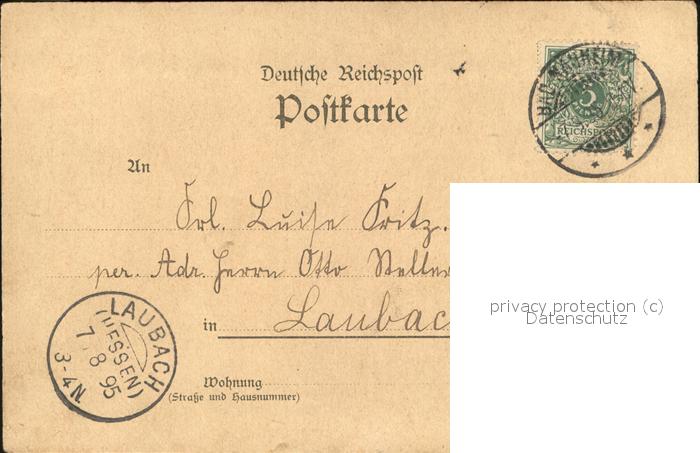 Deutsche Reichspost
Postkarte
BAD-NAUHEIM
5
REICHSPOST
An
Frl. Luise Fritz.
per. Adr. Herrn Otto
privacy protection (c)
Datenschutz
in Laubac
LAUBACH
(HESSEN)
7 8 95
3-4N.
Wohnung
(Straße und Hausnummer)